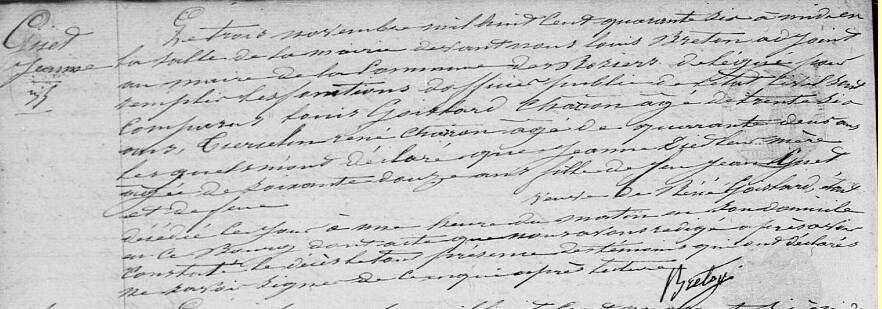 Guet
Jeanne
Le trois novembre mil huit cent quarante six à midi en
la salle de la mairie devant nous Louis Breton adjoint
au maire de la Commune de Rosiers délégué pour
remplir les fonctions d'officier public de l'état civil sont
comparus Louis Goislard Charon agé de trente six
ans, René Charon agé de quarante deux ans
lesquels m'ont déclaré que Jeanne Guet leur mère
agée de soixante douze ans fille de feu Jean Guet
et de feue veuve de René Goislard, était
décédée ce jour à une heure du matin en son domicile
en ce Bourg dont acte que nous avons rédigé après avoir
constaté le décès le tout présence des témoins qui ont déclarés
ne savoir signer de ce enquis après lecture
Breton